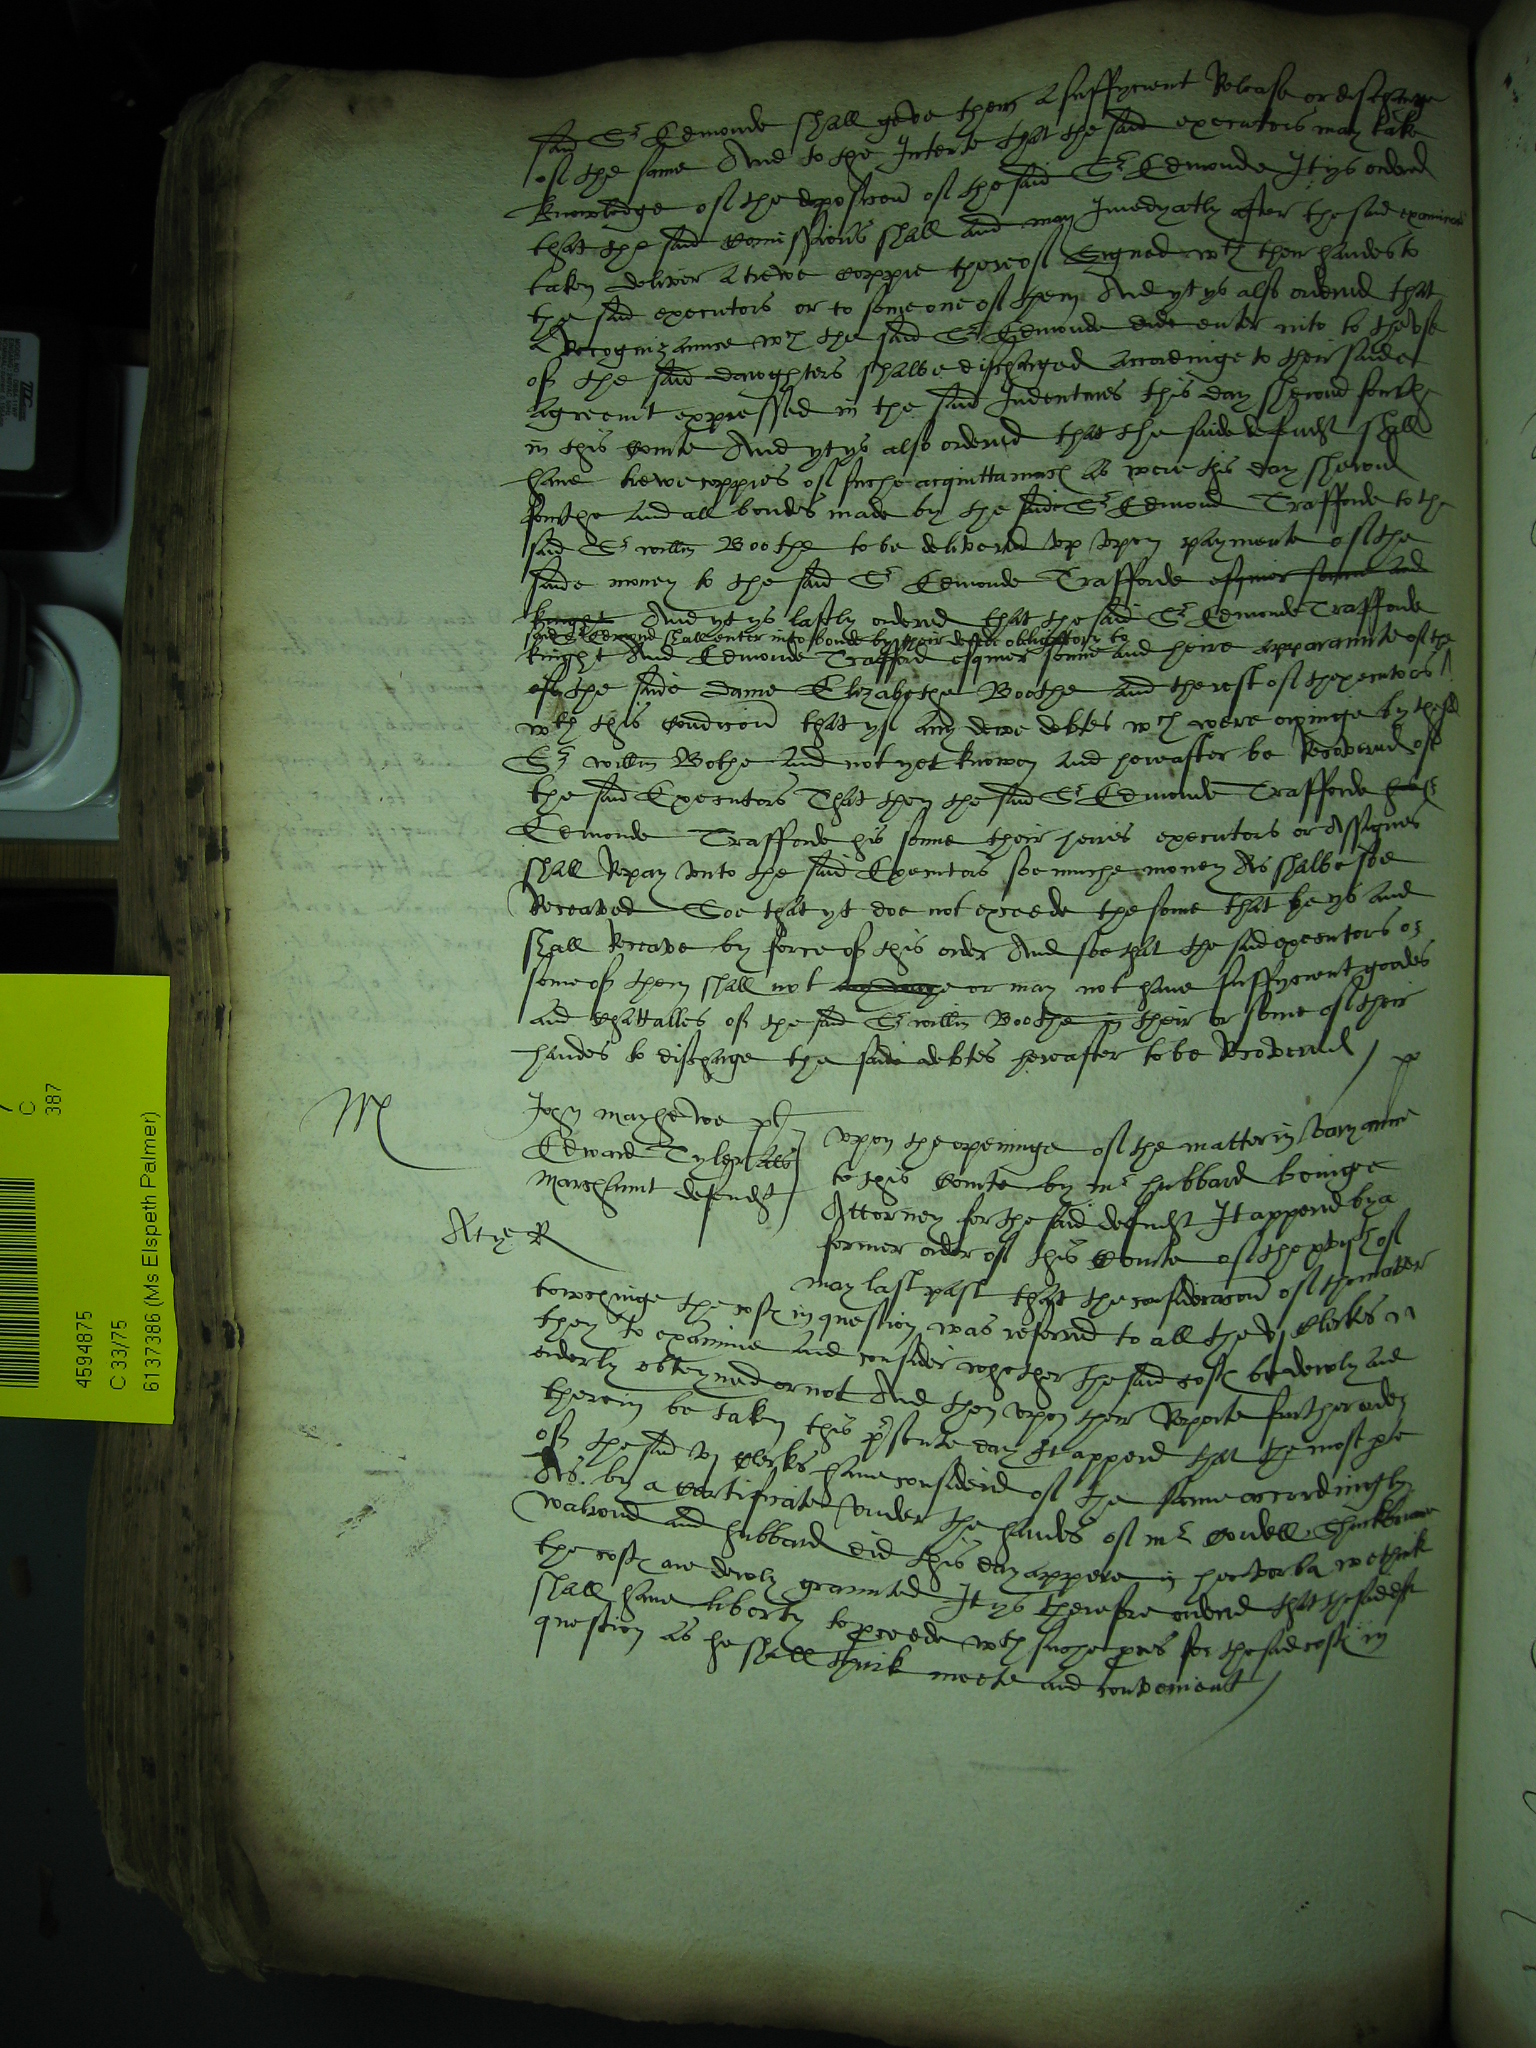 said Sr Edmonde shall geve them a suffycient Release or discharge
of the same And to the Intente that the said executors may take
knowledge of the deposicion of the said Sr Edmonde It ys ordered
that the said Comissions shall and may Imedyatly after the said
taken deliver a trewe coppie thereof Signed wth their handes to
the said executors or to some one of them And yt ys also ordered that
a Recognizaunce wch the said Sr Edmonde did enter into to the use
of the said dawghters shalbe discharged accordinge to their saide
agreemt expressed in the said Indentures this day shewed forth
in this Courte And yt ys also ordered that the saide defendt shall
have trewe coppies of suche acquittances as were this day shewed
forthe and all bondes made by the said Sr Edmond Trafforde to the
said Sr Willm Boothe to be delivered up upon paymente of the
saide money to the said Sr Edmonde Trafforde esquier sonne and
knight And yt ys lastly ordered that the said Sr Edmonde Trafforde
said Sr Edmond shall enter into bonde by their dedes obligatory to
knight And Edmonde Trafford esquier sonne and heire apparaunte of the
of the saide dame Elizabethe Boothe and the rest of thexecutors
wth this condicion that yf any dewe debtes wch were owinge by the said
Sr Willm Bothe and not yet knowen and hereafter be Recovered of
the said Executors That then the said Sr Edmonde Trafforde
Edmonde Trafforde his sonne their heires executors or Assignes
shall Repay unto the said Executors soe muche money As shalbe soe
Receaved Soe that yt doe not exceede the some that he ys and
shall Receave by force of this order And soe that the said executors or
some of them shall not or may not have suffycient goodes
and chattalles of the said Sr Willm Boothe in their or some of their
handes to discharge the said debtes hereafter to be Recovered
John Mayhewe pl
Edward Tyler als
Marchaunt defendt
Upon the openinge of the matter in varyaunce
to this Courte by mr Hubbard beinge
Attorney for the said defendt It appered by a
former order of this Courte of the of
May last past that the consideracion of the matter
towchinge the costs in question was referred to all the vj Clerkes
then to examine and consider whether the said costs be dewly and
orderly obteyned or not And then upon their Reporte further order
therein be taken this psente day It appered that the most pte
of the said vj Clerkes have considered of the same accordingly
As by a certificate under the handes of mr Cordell
Walrond and Hubbard did this day appere in hec verba we think
the costs are dewly graunted It ys therefore ordered that the said deft
shall have liberty to pceede wth suche pces for the said costs in
question as he shall think meete and convenient
4594875
C 33/75
6137386 (Ms Elspeth Palmer)
C
387